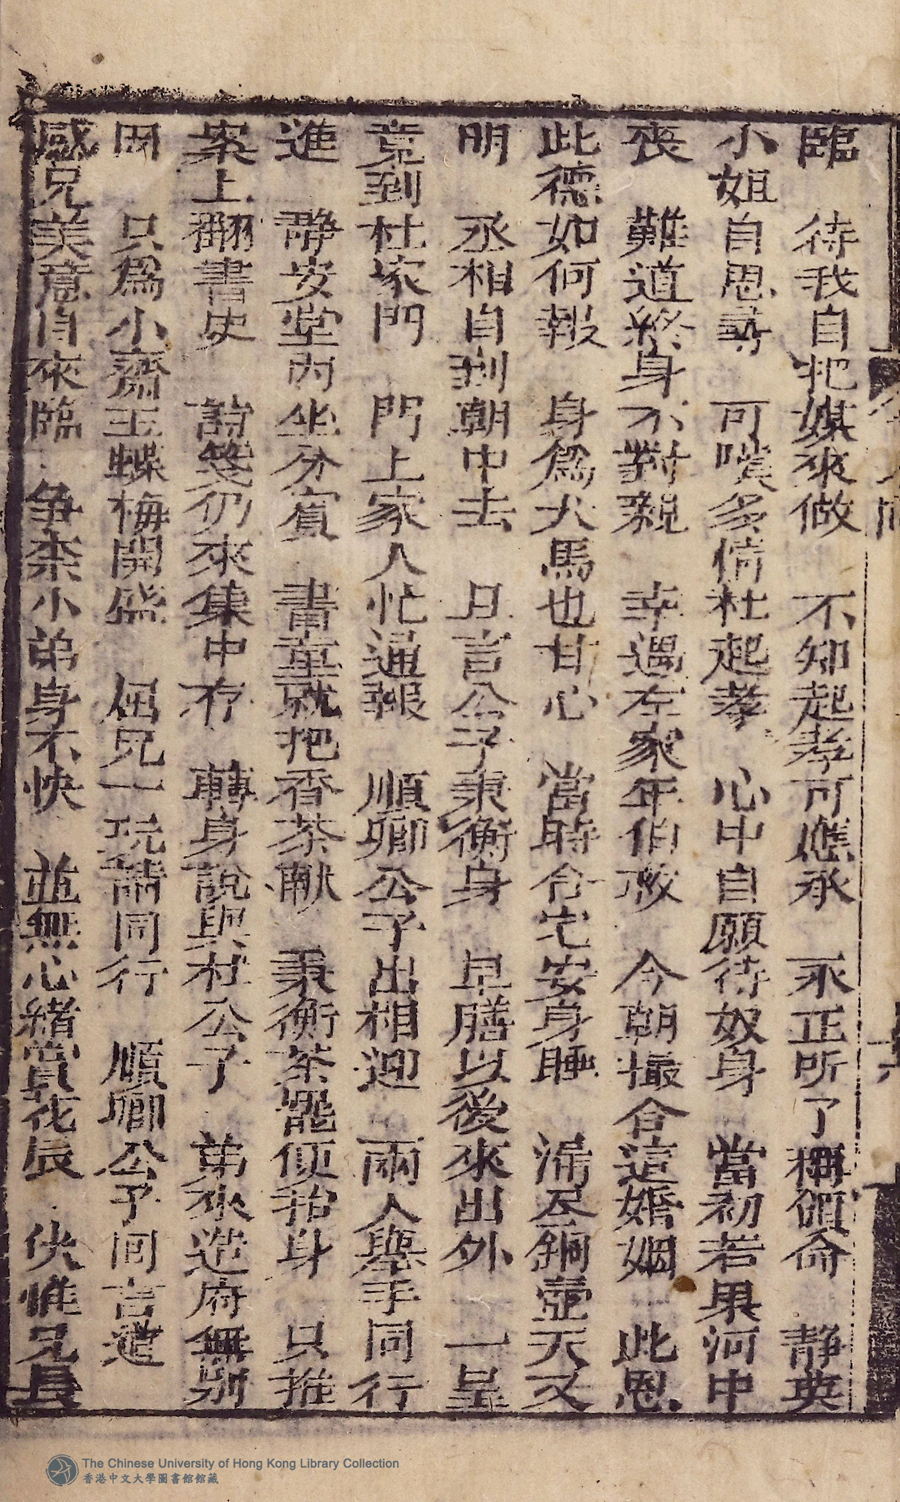 臨　待我自把媒來做　不知起孝可應承　永正所了稱頒侖　靜英
小姐自思尋　可嘆多情杜起孝　心中自願待奴身　當初若果河中
喪　難道終身不對親　幸遇左家年伯救　今朝撮合這婚姻　此恩
此德如何報　身爲犬馬也甘心　當時合宅安身睡　漏盡銅壺天又
明　丞相自到朝中去　且言公子秉衡身　早膳以後來出外　一呈
竟到杜家門　門上家人忙通報　順卿公子出相迎　兩人舉手同行
進　靜安堂內坐分賓　書童就把香茶献　秉衡茶罷便抬身　只推
案上翻書史　詩箋仍來集中存　轉身說與杜公子　弟來造府無別
因　只爲小齋玉蝶梅開盛　屈兄一玩請同行　順卿公子回言道
感兄美意自來臨　争柰小弟身不快　並無心緒賞花辰　伏惟兄長
The Chinese University of Hong Kong Library Collection
香港中文大學圖書館館藏